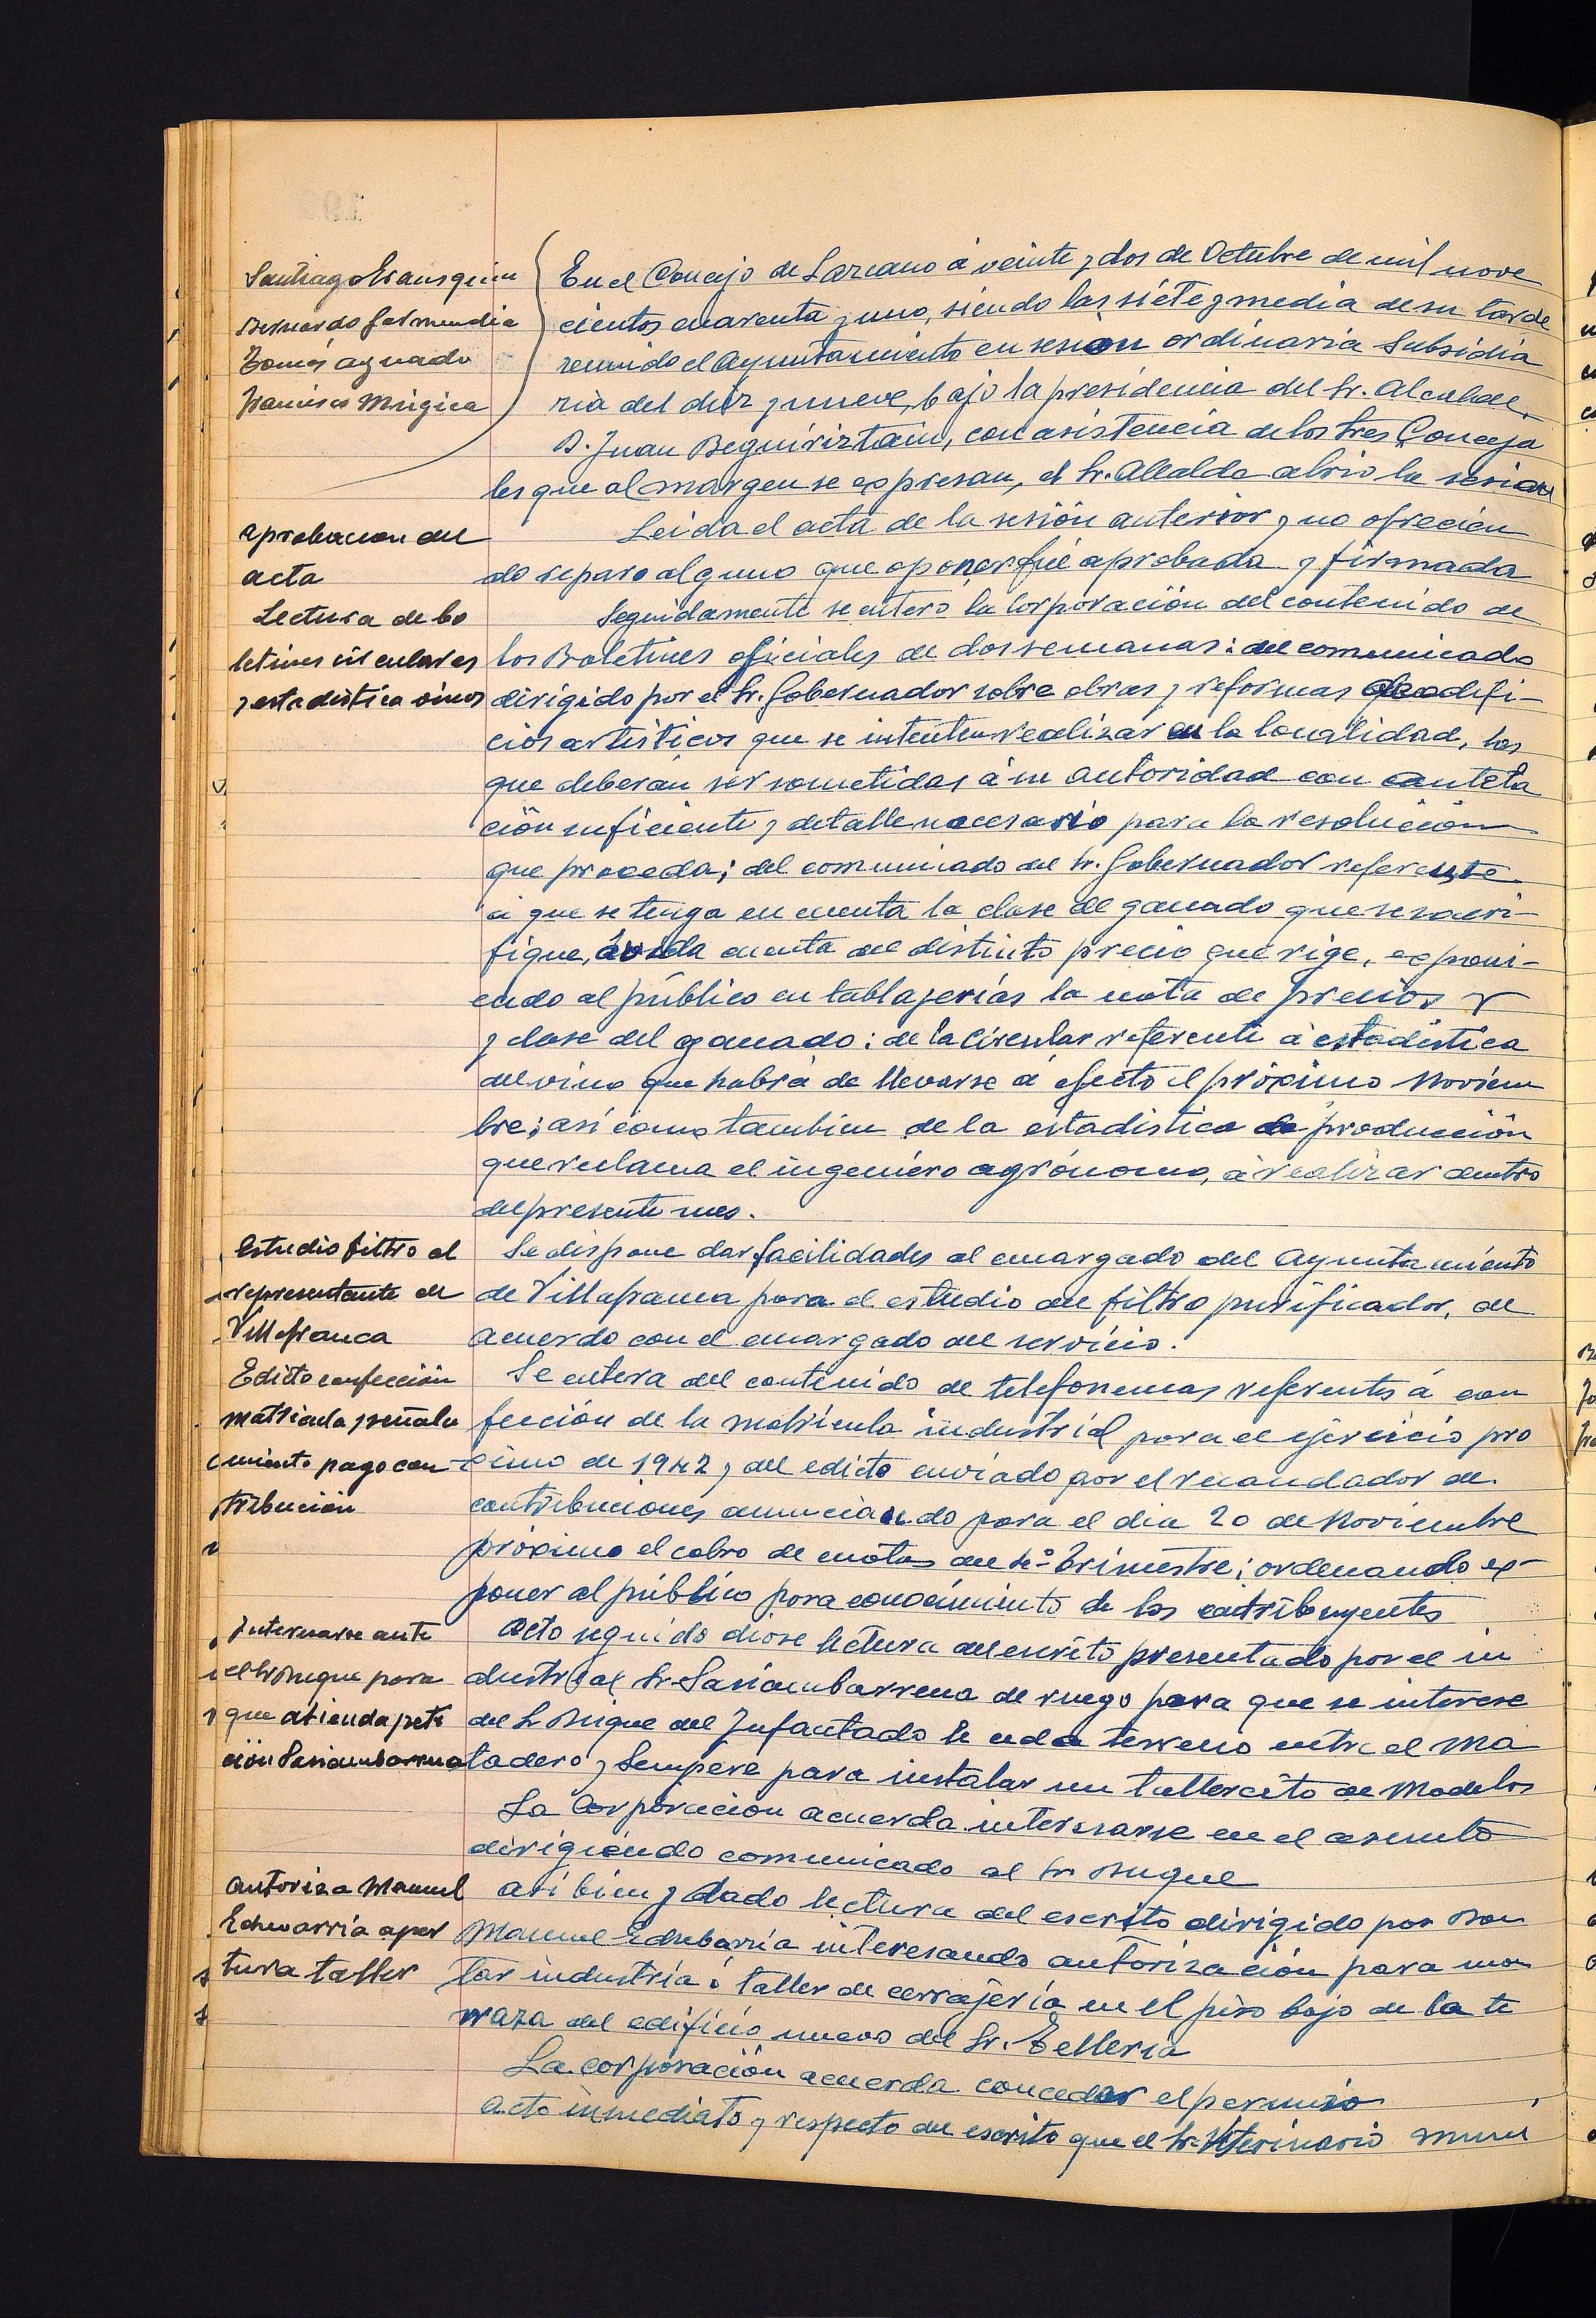 Santiago Ausquin
Bernardo Garmendia
Tomás aguado
Francisco Múgica
En el Concejo de Lazcano á veinte y dos de Octubre de mil nove
cientos cuarenta y uno, siendo las siete y media de su tarde
reunido el Ayuntamiento en sesion ordinaria Subsidia
ria del diez y nueve, bajo la presidencia del Sr. Alcalde,
D. Juan Beguiriztain, con asistencia de los Sres Conceja
les que al margen se expresan, el Sr. Alcalde abrió la sesion
aprobacion del
acta
Leida el acta de la sesión anterior y no ofrecien
do reparo alguno que oponer fué aprobada y firmada
Lectura de bo
letines circulares
y estadistica vinos
Seguidamente se enteró la Corporación del contenido de
los Boletines oficiales de dos semanas: del comunicado
dirigido por el Sr. Gobernador sobre obras y reformas de edifi-
cios artisticos que se intenten realizar en la localidad, las
que deberán ser sometidas á su autoridad con antela
ción suficiente y detalle necesario para la resolución
que proceda; del comunicado del Sr. Gobernador referente
á que se tenga en cuenta la clase de ganado que se sacri-
fique, habida cuenta del distinto precio que rige, exponi-
endo al público en tablajerías la nota de precios
y clase del ganado: de la Circular referente á estadística
del vino que habrá de llevarse á efecto el próximo Noviem
bre; así como tambien de la estadistica de producción
que reclama el ingeniero agrónomo, á realizar dentro
del presente mes.
Estudio filtro al
representante de
Villafranca
Se dispone dar facilidades al encargado del Ayuntamiento
de Villafranca para el estudio del filtro purificador, de
acuerdo con el encargado del servicio.
Edicto confección
matricula y señala
miento pago con-
tribución
Se entera del contenido de telefonemas referentes á con
fección de la matrícula industrial para el ejercicio pro
ximo de 1942 y del edicto enviado por el recaudador de
contribuciones anunciando para el dia 20 de Noviembre
próximo el cobro de cuotas del 4º Trimestre; ordenando ex-
poner al público para conocimiento de los contribuyentes
Interesarse ante
el Sr Duque para
que atienda peti
ción Sasiambarrena
Acto seguido diose lectura del escrito presentado por el in
dustrial Sr. Sasiambarrena de ruego para que se interese
del Sr Duque del Infantado le ceda terreno entre el Ma
tadero y Sempere para instalar un tallercito de Modelos
La Corporación acuerda interesarse en el asunto
dirigiendo comunicado al Sr Duque
autoriza Manuel
Echevarría aper
tura taller
Asi bien y dado lectura del escrito dirigido por Don
Manuel Echebarria interesando autorización para mon
tar industria ó taller de cerrajería en el piso bajo de la te
rraza del edificio nuevo del Sr. Telleria
La corporación acuerda conceder el permiso
Acto inmediato y respecto del escrito que el Sr. Veterinario muni